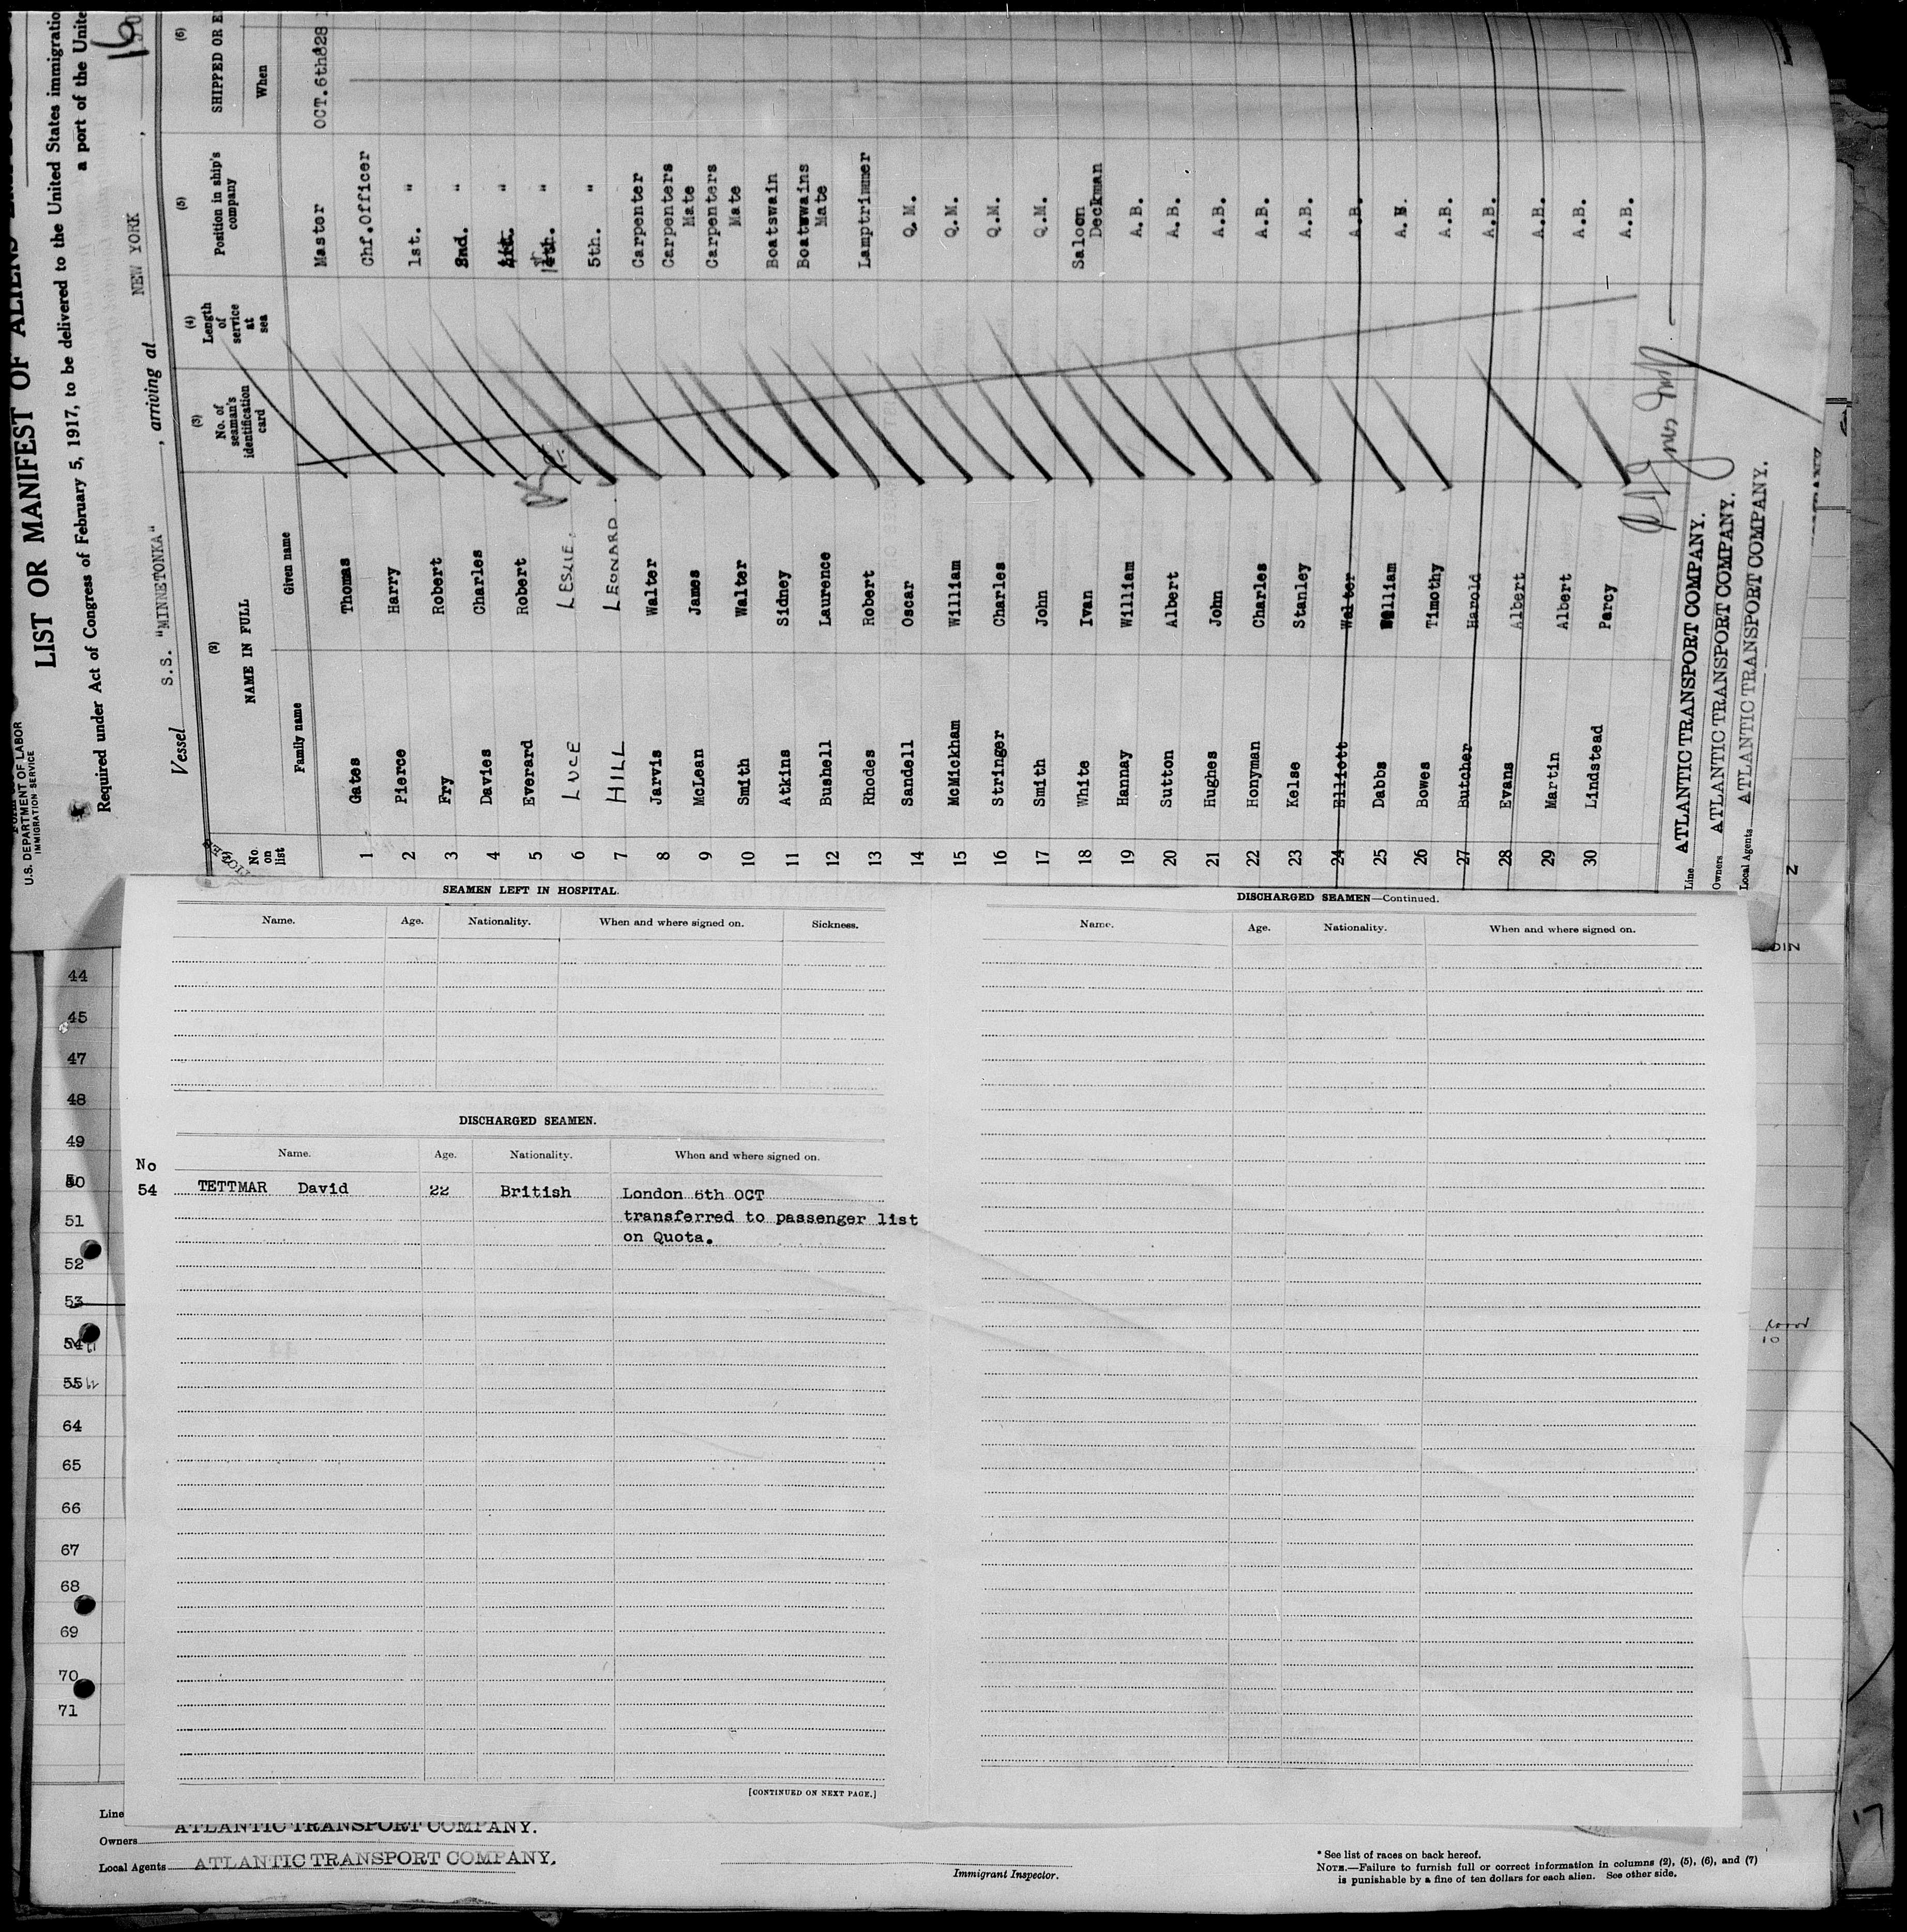 U.S. DEPARTMENT OF LABOR
IMMIGRATION SERVICE
LIST OR MANIFEST OF ALIENS
Required under Act of Congress of February 5, 1917, to be delivered to the United States immigratio
a port of the Unite
Vessel S.S. "MINNETONKA", arriving at NEW YORK,
16
(2) (3) (4) (5) (6)
No. on list
NAME IN FULL
Family name Given name
No. of seaman's identification card
Length of service at sea
Position in ship's company
SHIPPED OR E
When
1 Gates Thomas Master OCT.6th
2 Pierce Harry Chf.Officer
3 Fry Robert 1st. "
4 Davies Charles 2nd. "
5 Everard Robert "
6 LUCE LESLIE. "
7 HILL LEONARD. 5th. "
8 Jarvis Walter Carpenter
9 McLean James Carpenters Mate
10 Smith Walter Carpenters Mate
11 Atkins Sidney Boatswain
12 Bushell Laurence Boatswains Mate
13 Rhodes Robert Lamptrimmer
14 Sandell Oscar Q.M.
15 McMickham William Q.M.
16 Stringer Charles Q.M.
17 Smith John Q.M.
18 White Ivan Saloon Deckman
19 Hannay William A.B.
20 Sutton Albert A.B.
21 Hughes John A.B.
22 Honyman Charles A.B.
23 Kelse Stanley A.B.
24 Elliott Walter A.B.
25 Dabbs William A.B.
26 Bowes Timothy A.B.
27 Butcher Harold A.B.
28 Evans Albert A.B.
29 Martin Albert A.B.
30 Lindstead Parcy A.B.
Line ATLANTIC TRANSPORT COMPANY.
Owners ATLANTIC TRANSPORT COMPANY.
Local Agents ATLANTIC TRANSPORT COMPANY.
SEAMEN LEFT IN HOSPITAL.
Name. Age. Nationality. When and where signed on. Sickness.
DISCHARGED SEAMEN.
Name. Age. Nationality. When and where signed on.
No
54 TETTMAR David 22 British London 6th OCT
transferred to passenger list
on Quota.
[CONTINUED ON NEXT PAGE.]
DISCHARGED SEAMEN—Continued.
Name. Age. Nationality. When and where signed on.
44
45
47
48
49
50
51
52
53
54
55
64
65
66
67
68
69
70
71
10
Line
ATLANTIC TRANSPORT COMPANY.
Owners
Local Agents ATLANTIC TRANSPORT COMPANY.
Immigrant Inspector.
* See list of races on back hereof.
NOTE.—Failure to furnish full or correct information in columns (2), (5), (6), and (7)
is punishable by a fine of ten dollars for each alien. See other side.